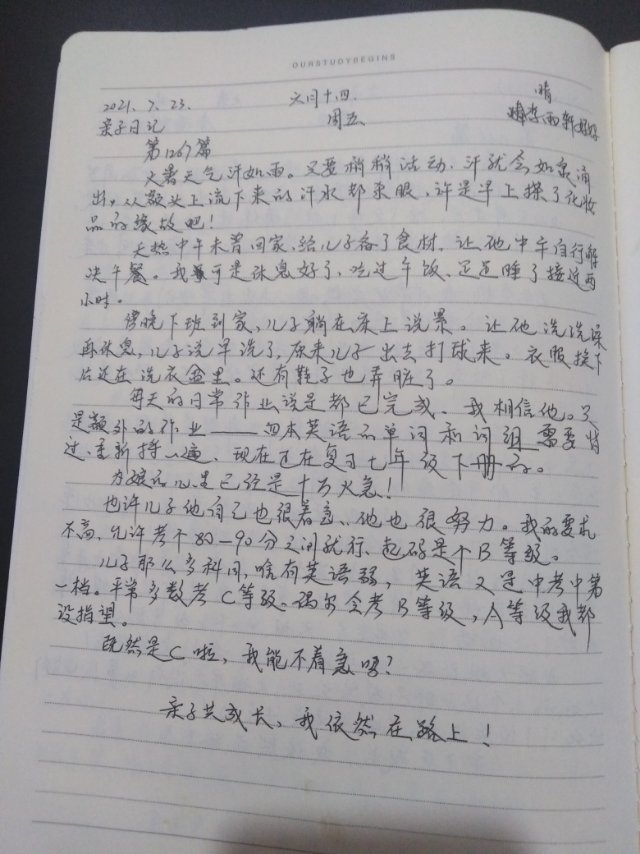 OURSTUDYBEGINS
2021. 7. 23. 六月十四. 晴
亲子日记 周五
第1267篇
火暑天气汗如雨。又要稍稍活动, 汗就会如泉涌
出。从额头上流下来的汗水都杀眼, 许是早上搽了化妆
品的缘故吧!
天热中午未曾回家, 给儿子备了食材, 让他中午自行解
决午餐。我可是休息好了, 吃过午饭, 足足睡了接近两
小时。
傍晚下班到家, 儿子躺在床上说累。让他洗洗澡
再休息, 儿子说早洗了, 原来儿子出去打球来。衣服换下
后还在洗衣盆里。还有鞋子也弄脏了。
每天的日常作业说是都已完成, 我相信他。只
是额外的作业——四本英语的单词和词组需要
过, 重新持一遍, 现在还在复习七年级下册的。
为娘的心里已经是十万火急!
也许儿子他自己也很着急, 他也很努力。我的要求
不高, 允许考个80—90分之间就行, 起码是个B等级。
儿子那么多科目, 唯有英语弱, 英语又是中考中第
一档。平常多数考C等级, 偶尔会考B等级, A等级我都
没指望。
既然是C啦, 我能不着急吗?
亲子共成长, 我依然在路上!